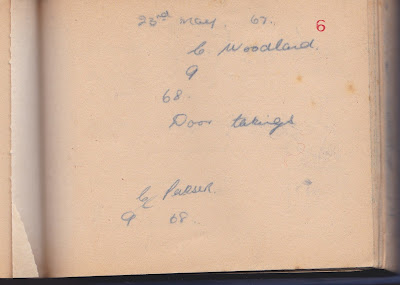 23rd May. 67. 6
C Woodland.
9
68.
Door takings
Parser.
9 68.